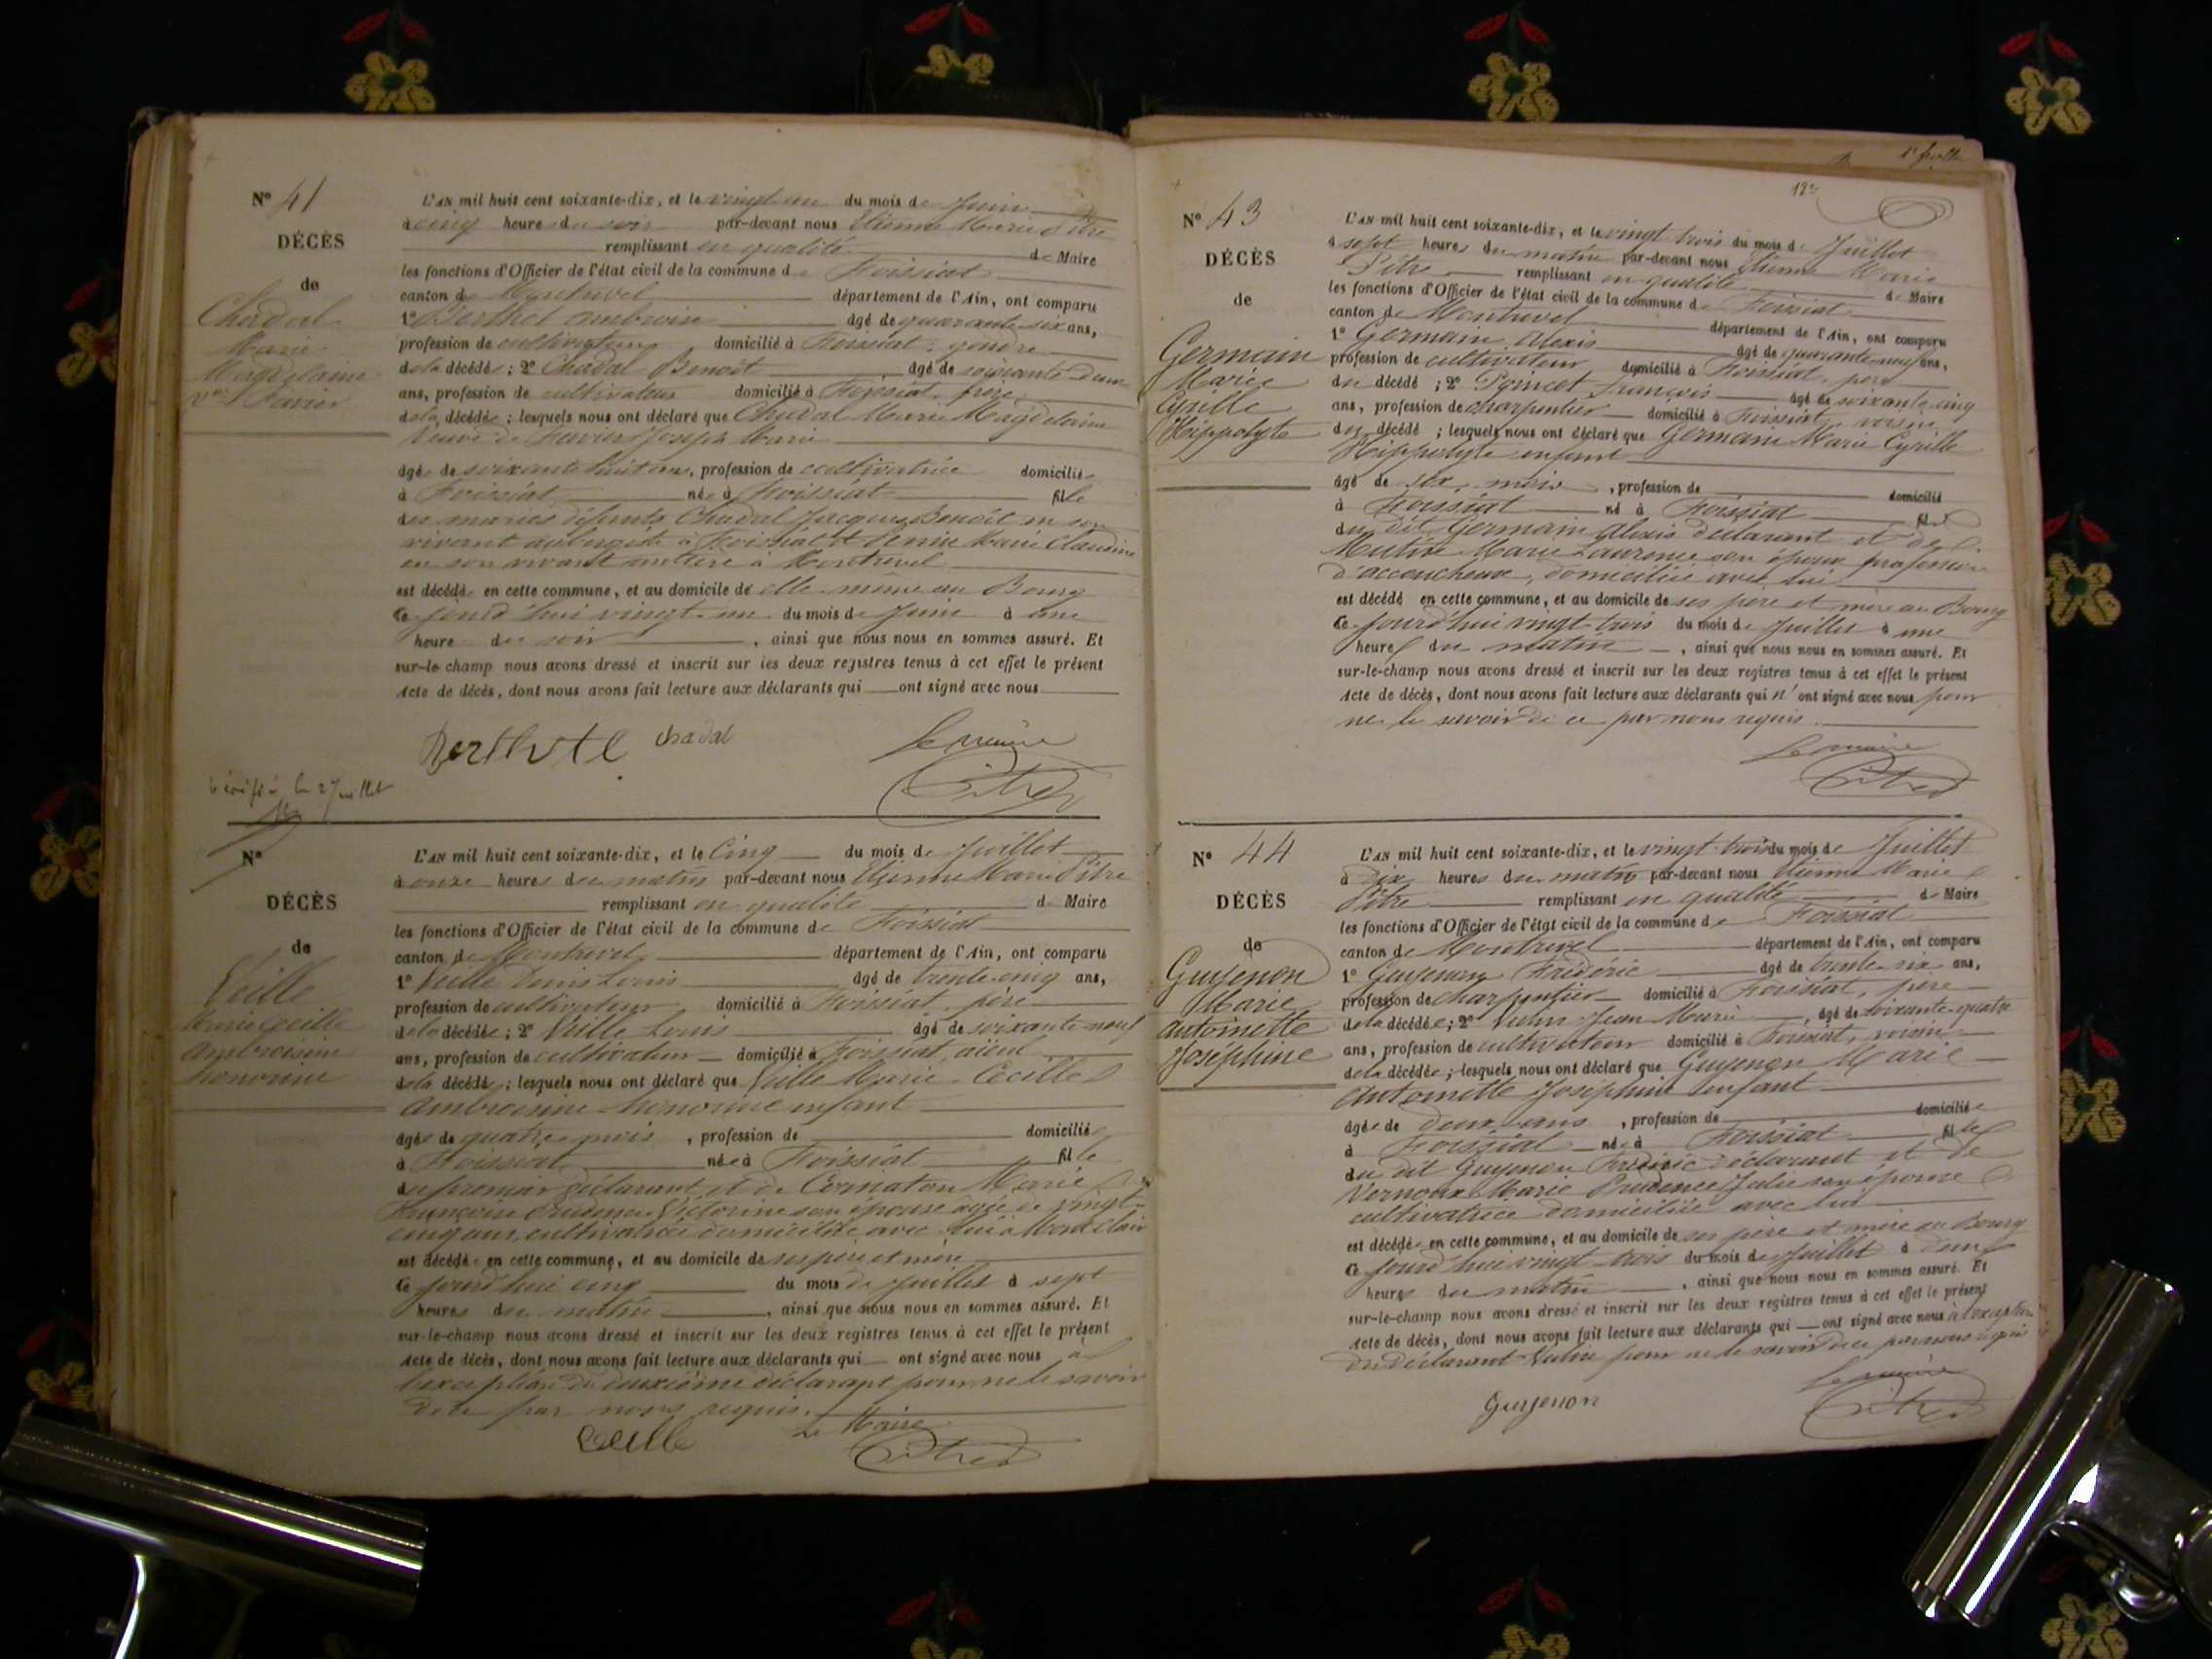 N° 41
DÉCÈS
de
Chadal
Marie
Magdelaine
Vve Favier
L'AN mil huit cent soixante-dix, et le vingt un du mois de Juin
à cinq heures du soir par-devant nous Etienne Marie Pitre
remplissant en qualité de Maire
les fonctions d'Officier de l'état civil de la commune de Foissiat
canton de Montrevel département de l'Ain, ont comparu
1° Berthet ambroise âgé de quarante six ans,
profession de cultivateur domicilié à Foissiat, gendre
de la décédée ; 2° Chadal Benoit âgé de soixante deux
ans, profession de cultivateur domicilié à Foissiat, frère
de la décédée ; lesquels nous ont déclaré que Chadal Marie Magdelaine
Veuve de Favier Joseph Marie
âgée de soixante huit ans, profession de cultivatrice domiciliée
à Foissiat née à Foissiat fille
des mariés défunts Chadal Jacques Benoit en son
vivant aubergiste à Foissiat et Marie Claudine
en son vivant à Montrevel
est décédée en cette commune, et au domicile de elle même au Bourg
Ce jourd'hui vingt-un du mois de Juin à une
heure du soir , ainsi que nous nous en sommes assuré. Et
sur-le-champ nous avons dressé et inscrit sur les deux registres tenus à cet effet le présent
Acte de décès, dont nous avons fait lecture aux déclarants qui ont signé avec nous
chadal
Le maire
Pitre
vérifié le 2 Juillet
N°
DÉCÈS
de
Veille
Marie Cécille
Ambroisine
honorine
L'AN mil huit cent soixante-dix, et le Cinq du mois de Juillet
à onze heures du matin par-devant nous Etienne Marie Pitre
remplissant en qualité de Maire
les fonctions d'Officier de l'état civil de la commune de Foissiat
canton de Montrevel département de l'Ain, ont comparu
1° Veille Denis Louis âgé de trente-cinq ans,
profession de cultivateur domicilié à Foissiat, père
de la décédée ; 2° Veille Louis âgé de soixante neuf
ans, profession de cultivateur domicilié à Foissiat, aïeul
de la décédée ; lesquels nous ont déclaré que Veille Marie Cécille
Ambroisine honorine enfant
âgée de quatre mois , profession de domiciliée
à Foissiat née à Foissiat fille
du premier déclarant et de Cormaton Marie
Françoise Victorine son épouse âgée de vingt-
cinq ans, cultivatrice domiciliée avec lui à
est décédée en cette commune, et au domicile de ses père et mère
Ce jourd'hui cinq du mois de Juillet à sept
heures du matin , ainsi que nous nous en sommes assuré. Et
sur-le-champ nous avons dressé et inscrit sur les deux registres tenus à cet effet le présent
Acte de décès, dont nous avons fait lecture aux déclarants qui ont signé avec nous à
l'exception du deuxième déclarant pour ne le savoir
de ce par nous requis.
Veille
Le Maire
Pitre
N° 43
DÉCÈS
de
Germain
Marie
Cyrille
Hippolyte
L'AN mil huit cent soixante-dix, et le vingt trois du mois de Juillet
à sept heures du matin par-devant nous Etienne Marie
Pitre remplissant en qualité de Maire
les fonctions d'Officier de l'état civil de la commune de Foissiat
canton de Montrevel département de l'Ain, ont comparu
1° Germain Alexis âgé de quarante neuf ans,
profession de cultivateur domicilié à Foissiat, père
du décédé ; 2° Poincet françois âgé de soixante cinq
ans, profession de charpentier domicilié à Foissiat, voisin
du décédé ; lesquels nous ont déclaré que Germain Marie Cyrille
Hippolyte enfant
âgé de six mois , profession de domicilié
à Foissiat né à Foissiat fils
du dit Germain Alexis déclarant et de
Marie Laurence son épouse profession
d'accoucheuse, domiciliée avec lui
est décédé en cette commune, et au domicile de ses père et mère au Bourg
Ce jourd'hui vingt-trois du mois de Juillet à une
heure du matin , ainsi que nous nous en sommes assuré. Et
sur-le-champ nous avons dressé et inscrit sur les deux registres tenus à cet effet le présent
Acte de décès, dont nous avons fait lecture aux déclarants qui n'ont signé avec nous pour
ne le savoir de ce par nous requis.
Le maire
Pitre
N° 44
DÉCÈS
de
Guyenon
Marie
antoinette
Joséphine
L'AN mil huit cent soixante-dix, et le vingt-trois du mois de Juillet
à dix heures du matin par-devant nous Etienne Marie
Pitre remplissant en qualité de Maire
les fonctions d'Officier de l'état civil de la commune de Foissiat
canton de Montrevel département de l'Ain, ont comparu
1° Guyenon Frédéric âgé de trente-six ans,
profession de charpentier domicilié à Foissiat, père
de la décédée ; 2° Vulin Jean Marie âgé de soixante-quatre
ans, profession de cultivateur domicilié à Foissiat, voisin
de la décédée ; lesquels nous ont déclaré que Guyenon Marie
Antoinette Joséphine enfant
âgée de deux ans , profession de domiciliée
à Foissiat née à Foissiat fille
du dit Guyenon Frédéric déclarant et de
Vernoux Marie Prudence Julie son épouse
cultivatrice domiciliée avec lui
est décédée en cette commune, et au domicile de ses père et mère au Bourg
Ce jourd'hui vingt-trois du mois de Juillet à deux
heures du matin , ainsi que nous nous en sommes assuré. Et
sur-le-champ nous avons dressé et inscrit sur les deux registres tenus à cet effet le présent
Acte de décès, dont nous avons fait lecture aux déclarants qui ont signé avec nous à l'exception
du déclarant Vulin pour ne le savoir de ce par nous requis
Guyenon
Le maire
Pitre